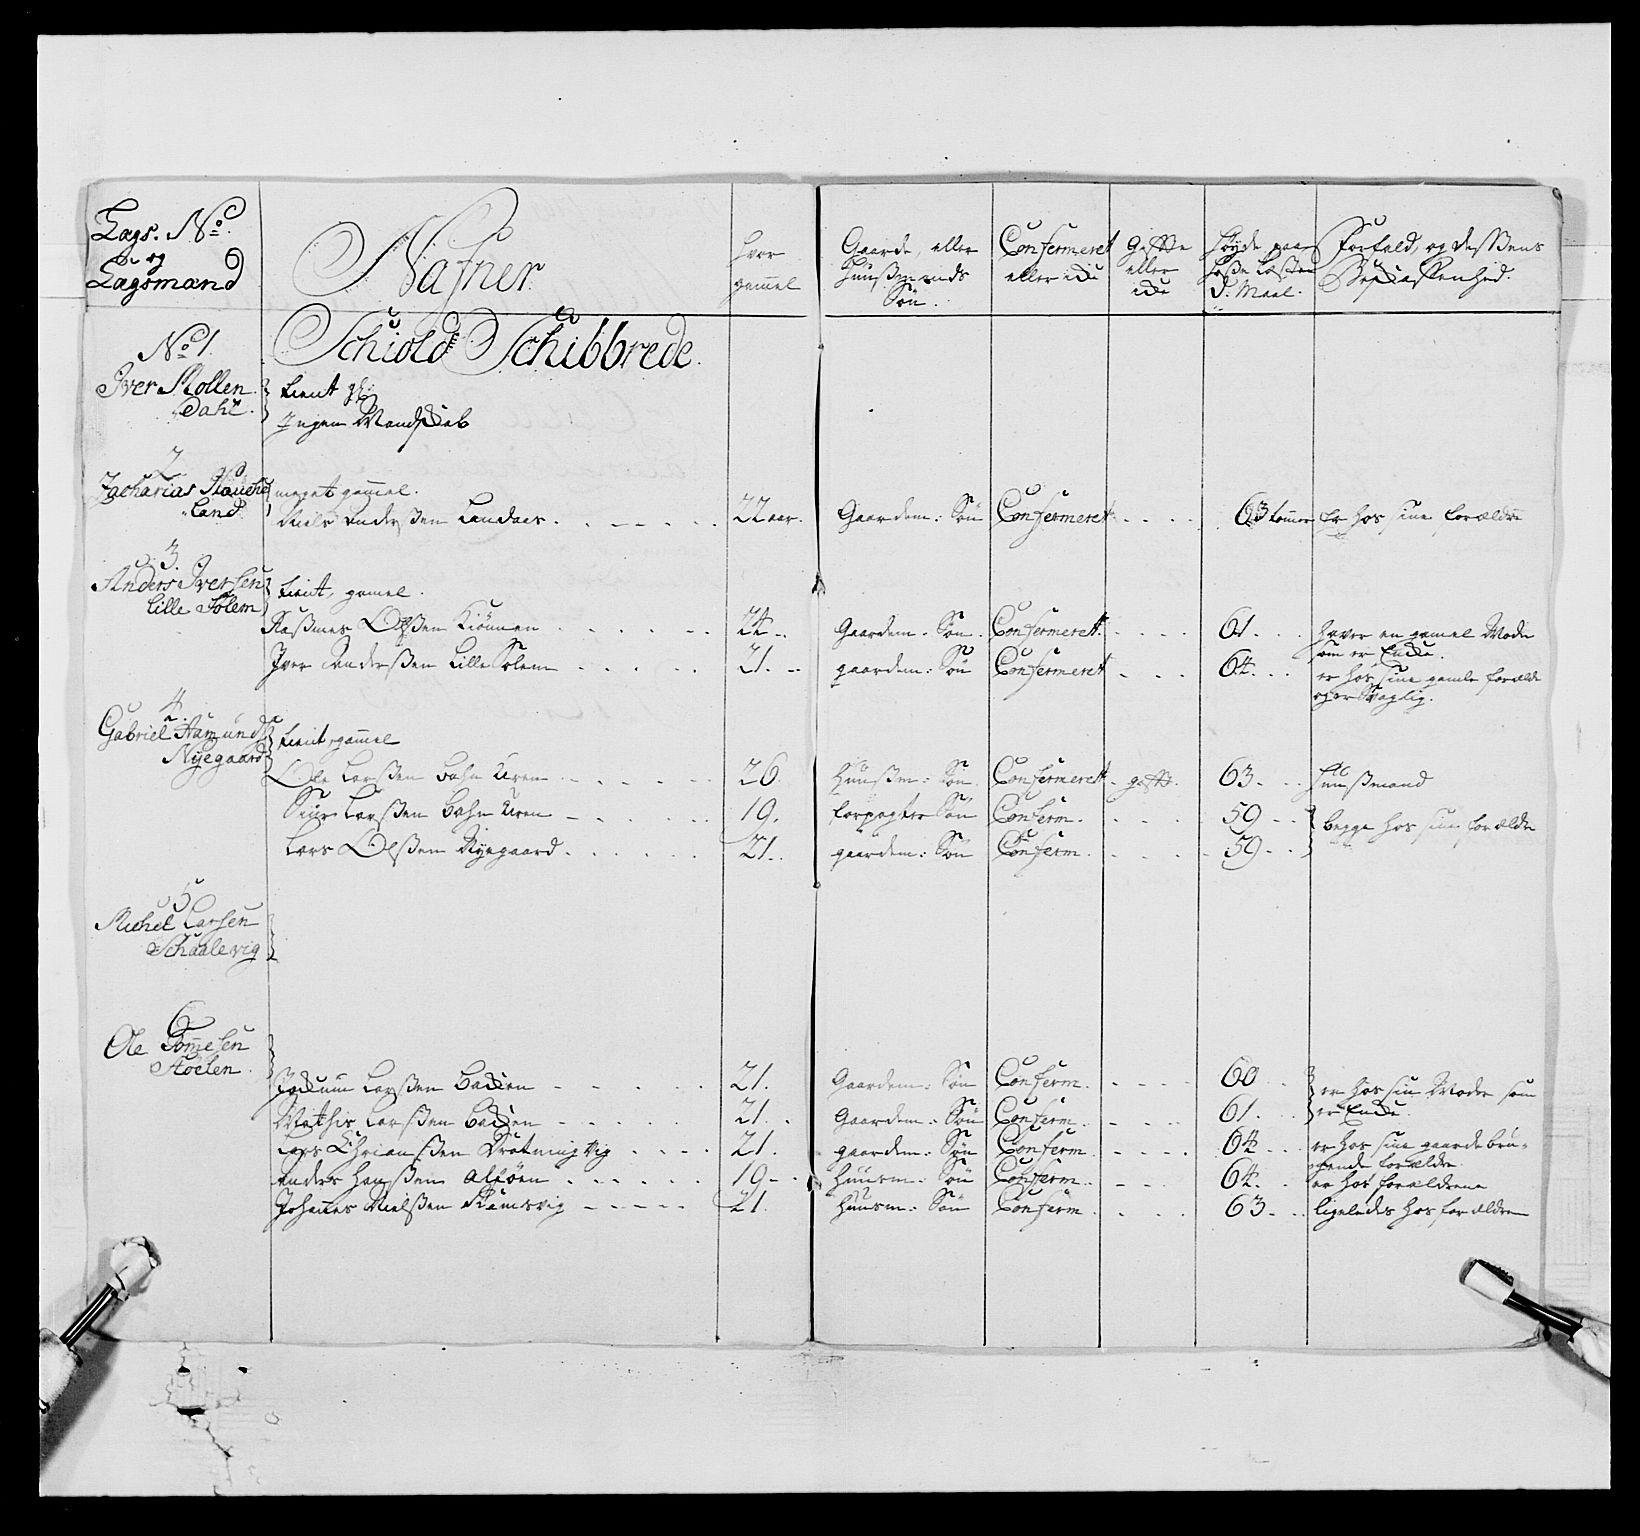 Lags. No.
og
Lagsmand
Nafner
hvor
gammel
Gaarde, eller
Huusmands
Søn.
Confermeret
eller icke
Gifte
eller
icke
Høyde paa
D: Maal.
Forfald, og dessens
Beskaffenhed.
No 1.
Schiold Schibbrede.
Iver Mollen
Dahl.
tient
Ingen Mandskab
2
Zacharias
Land
meget gammel.
Niels Anderssen Landaas
22 aar.
Gaardem: Søn
Confermeret
63 tommer
er hos sine forældre
3.
Anders Iversen
Lille Solem
tient, gamel.
Rasmus Olssen
22
Gaardem. Søn
Confermeret
61
haver en gamel Moder
som er Encke.
Iver Anderssen Lille Solem
21
gaardem: Søn
Confermeret
64
er hos sine gamle foræld
og er svaglig.
4.
Gabriel Aamund
Nyegaard
tient, gammel
Ole Larssen
26
Huusm: Søn
Confermeret
gift
63
Huusmand
Siur Larssen
19.
forpagter Søn
Conferm.
59
begge hos sine forældre
Lars Olssen Nyegaard
21
gaardem: Søn
Conferm.
59
5
Michel Larsen
Schaalevig
6
Ole Tommesen
Stoelen
Jochum Larssen
21.
Gaardem: Søn
Conferm.
60
er hos sin Moder som
er Encke.
Mathis Larssen
21
Gaardem: Søn
Conferm.
61
Lars Chrianssen
21.
gaardem: Søn
Conferm.
64
er hos sine gaardebru-
gende forældre
Anders Hanssen Alføen
19
huusm: Søn
Conferm.
64
er hos forældrene
Johannes Nielssen
21.
huusm: Søn
Conferm.
63
ligeledes hos forældrene